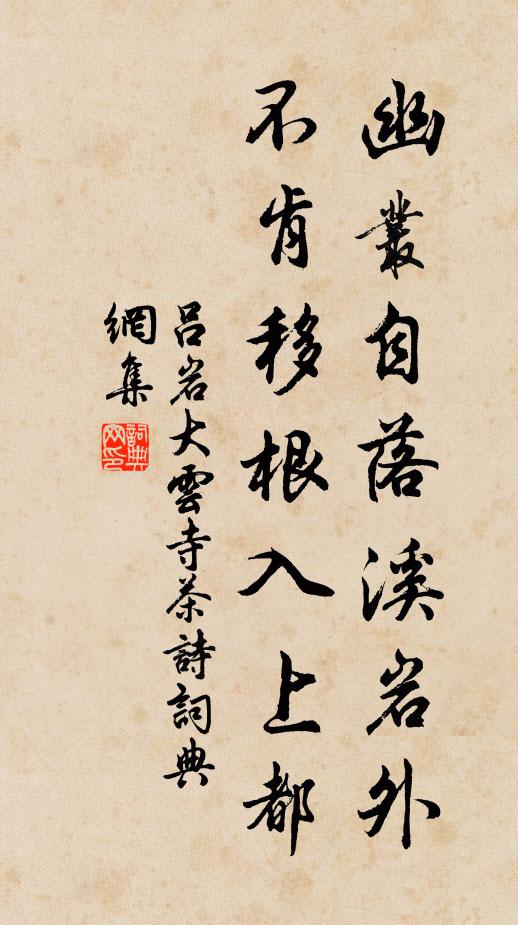 幽叢自落溪岩外
不肯移根入上都
呂岩大雲寺茶詩詞典
網集
詞典網印